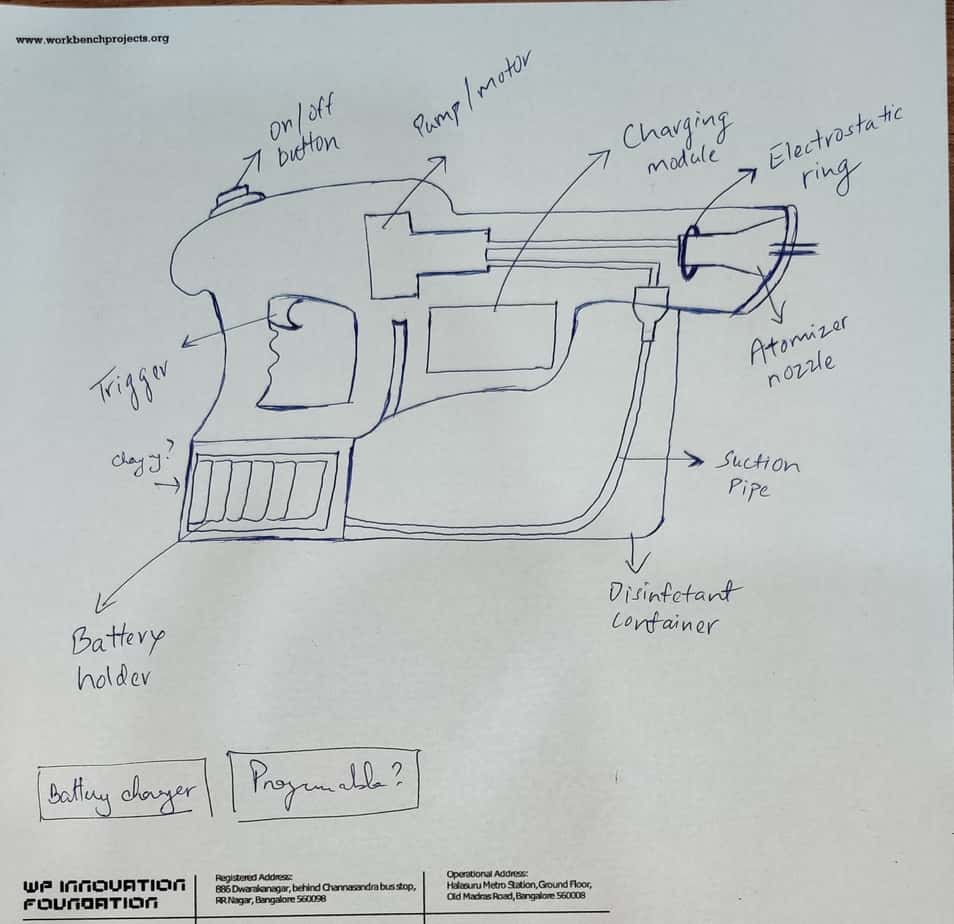 www.workbenchprojects.org
on/off
button
Pump/motor
Charging
module
Electrostatic
ring
Trigger
Atomizer
nozzle
Suction
Pipe
Disinfetant
container
Battery
holder
Battery charger
WP INNOVATION
FOUNDATION
Registered Address:
886 Dwarakanagar, behind Channasandra bus stop,
RR Nagar, Bangalore 560098
Operational Address:
Halasuru Metro Station, Ground Floor,
Old Madras Road, Bangalore 560008